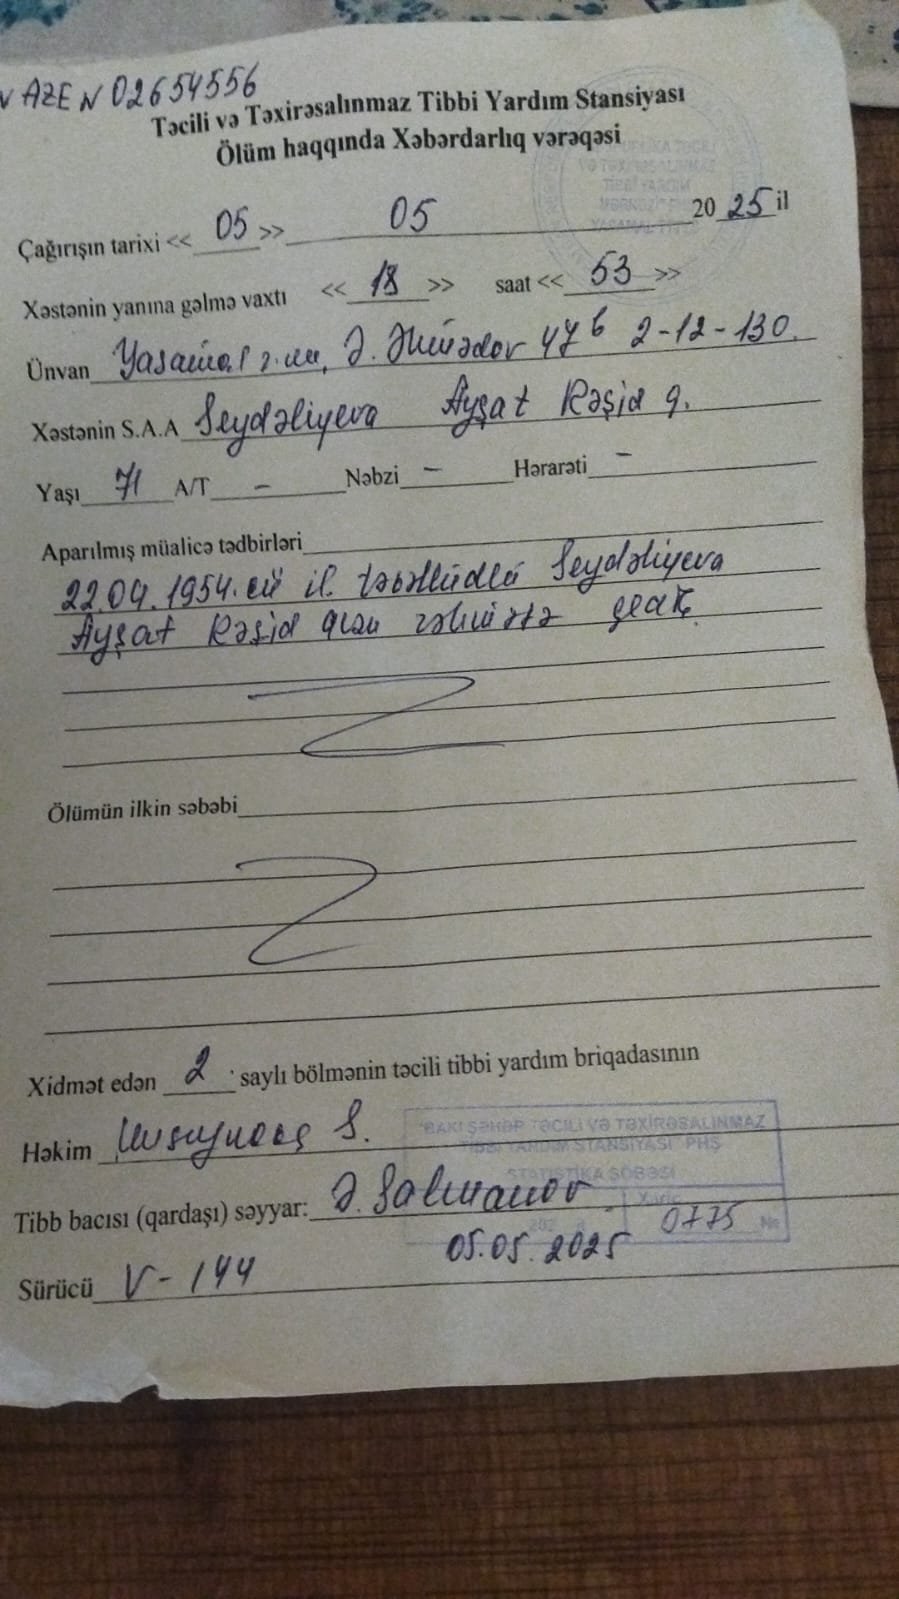 AZE N 02654556
Təcili və Təxirəsalınmaz Tibbi Yardım Stansiyası
Ölüm haqqında Xəbərdarlıq vərəqəsi
Çağırışın tarixi << 05 >> 05 2025 il
Xəstənin yanına gəlmə vaxtı << 18 >> saat << 53 >>
Ünvan Yasamal 2-12-130.
Xəstənin S.A.A Seydəliyeva Ayşat Rəşid q.
Yaşı 71 A/T - Nəbzi - Hərarəti -
Aparılmış müalicə tədbirləri
22.04.1954.cü il təvəllüdlü Seydəliyeva
Ayşat Rəşid qızı
Ölümün ilkin səbəbi
Xidmət edən 2 saylı bölmənin təcili tibbi yardım briqadasının
Həkim S.
BAKI ŞƏHƏR TƏCİLİ VƏ TƏXİRƏSALINMAZ
TİBBİ YARDIM STANSİYASI PHŞ
STATİSTİKA ŞÖBƏSİ
Tibb bacısı (qardaşı) səyyar: Ə. Salmanov
0775 №
05.05.2025
Sürücü V-144